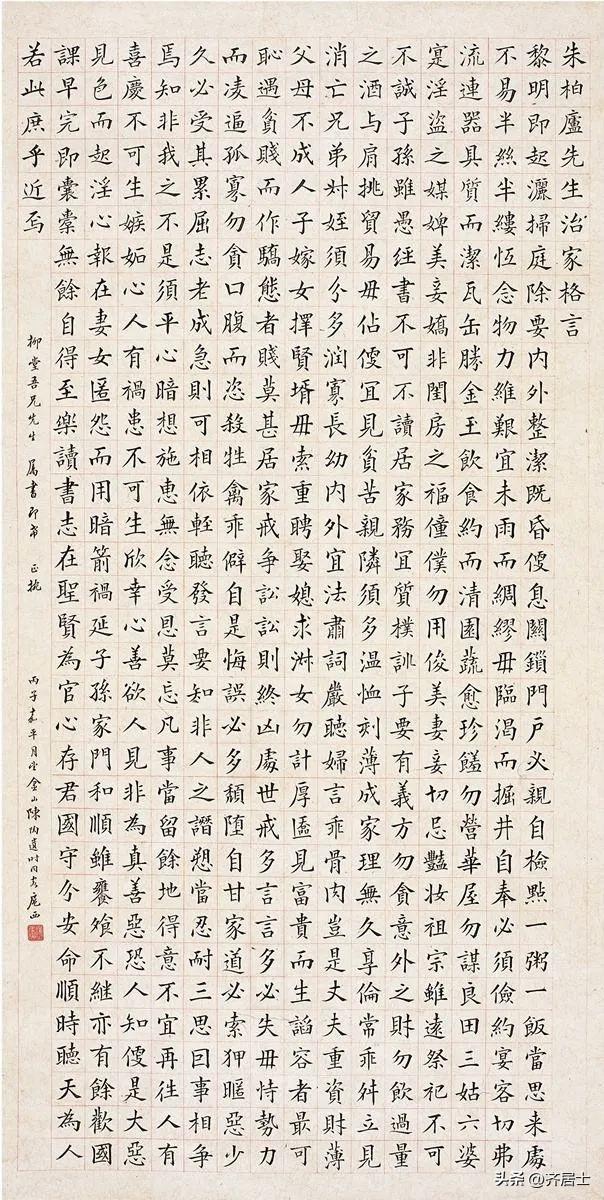 朱柏廬先生治家格言
黎明即起灑掃庭除要內外整潔既昏便息關鎖門戶必親自檢點一粥一飯當思来處
不易半絲半縷恆念物力維艱宜未雨而綢繆毋臨渴而掘井自奉必須儉約宴客切弗
流連器具質而潔瓦缶勝金玉飲食約而清園蔬愈珍饈勿營華屋勿謀良田三姑六婆
寔淫盜之媒婢美妾嬌非閨房之福僮僕勿用俊美妻妾切忌豔妝祖宗雖遠祭祀不可
不誠子孫雖愚經書不可不讀居家務宜質樸訓子要有義方勿貪意外之財勿飲過量
之酒与肩挑貿易毋佔便宜見貧苦親隣須多温恤刻薄成家理無久享倫常乖舛立見
消亡兄弟叔姪須分多潤寡長幼內外宜法肅詞嚴聽婦言乖骨肉豈是丈夫重資財薄
父母不成人子嫁女擇賢壻毋索重聘娶媳求淑女勿計厚奩見富貴而生諂容者最可
恥遇貧賤而作驕態者賤莫甚居家戒爭訟訟則終凶處世戒多言言多必失毋恃勢力
而凌逼孤寡勿貪口腹而恣殺牲禽乖僻自是悔誤必多頹墮自甘家道必索狎暱惡少
久必受其累屈志老成急則可相依輕聽發言要知非人之譖愬當忍耐三思囙事相爭
焉知非我之不是須平心暗想施惠無念受恩莫忘凡事當留餘地得意不宜再往人有
喜慶不可生嫉妬心人有禍患不可生欣幸心善欲人見非為真善惡恐人知便是大惡
見色而起淫心報在妻女匿怨而用暗箭禍延子孫家門和順雖饔飧不繼亦有餘歡國
課早完即囊橐無餘自得至樂讀書志在聖賢為官心存君國守分安命順時聽天為人
若此庶乎近焉
柳堂吾兄先生 屬書即希 正
丙子嘉平月 金山陳陶遺時同客扈西
头条 @齐居士